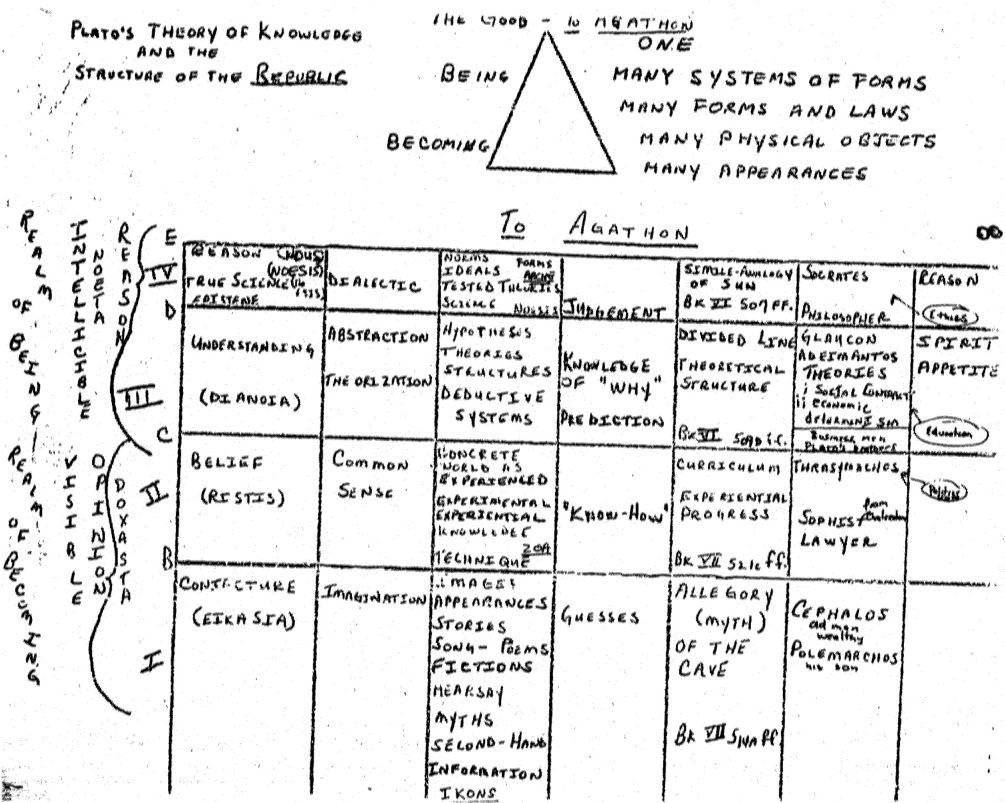 PLATO'S THEORY OF KNOWLEDGE
AND THE
STRUCTURE OF THE REPUBLIC
THE GOOD - TO AGATHON
ONE
BEING
MANY SYSTEMS OF FORMS
MANY FORMS AND LAWS
BECOMING
MANY PHYSICAL OBJECTS
MANY APPEARANCES
TO AGATHON
REALM OF BEING / REALM OF BECOMING
INTELLIGIBLE
VISIBLE
NOETA
OPINION
REASON
DOXASTA
E
IV
D
III
C
II
B
I
REASON (NOUS)
(NOESIS)
TRUE SCIENCE
EPISTEME
DIALECTIC
NORMS FORMS
IDEALS
TESTED THEORIES
SCIENCE NOESIS
JUDGEMENT
SIMILE-ANALOGY
OF SUN
BK VI 507 FF.
SOCRATES
PHILOSOPHER
REASON
Ethics
UNDERSTANDING
(DIANOIA)
ABSTRACTION
THEORIZATION
HYPOTHESIS
THEORIES
STRUCTURES
DEDUCTIVE
SYSTEMS
KNOWLEDGE
OF "WHY"
PREDICTION
DIVIDED LINE
THEORETICAL
STRUCTURE
BK VI
GLAUCON
ADEIMANTOS
THEORIES
i Social Contract
ii economic
determinism
Business men
Plato's brothers
SPIRIT
APPETITE
Education
BELIEF
(PISTIS)
COMMON
SENSE
CONCRETE
WORLD AS
EXPERIENCED
EXPERIMENTAL
EXPERIENTIAL
KNOWLEDGE
TECHNIQUE
"KNOW-HOW"
CURRICULUM
EXPERIENTIAL
PROGRESS
BK VII 521c ff.
THRASYMACHOS
SOPHIST
LAWYER
from
Politics
CONJECTURE
(EIKASIA)
IMAGINATION
IMAGES
APPEARANCES
STORIES
SONG-POEMS
FICTIONS
HEARSAY
MYTHS
SECOND-HAND
INFORMATION
IKONS
GUESSES
ALLEGORY
(MYTH)
OF THE
CAVE
BK VII 514A ff
CEPHALOS
old man
wealthy
POLEMARCHOS
his son